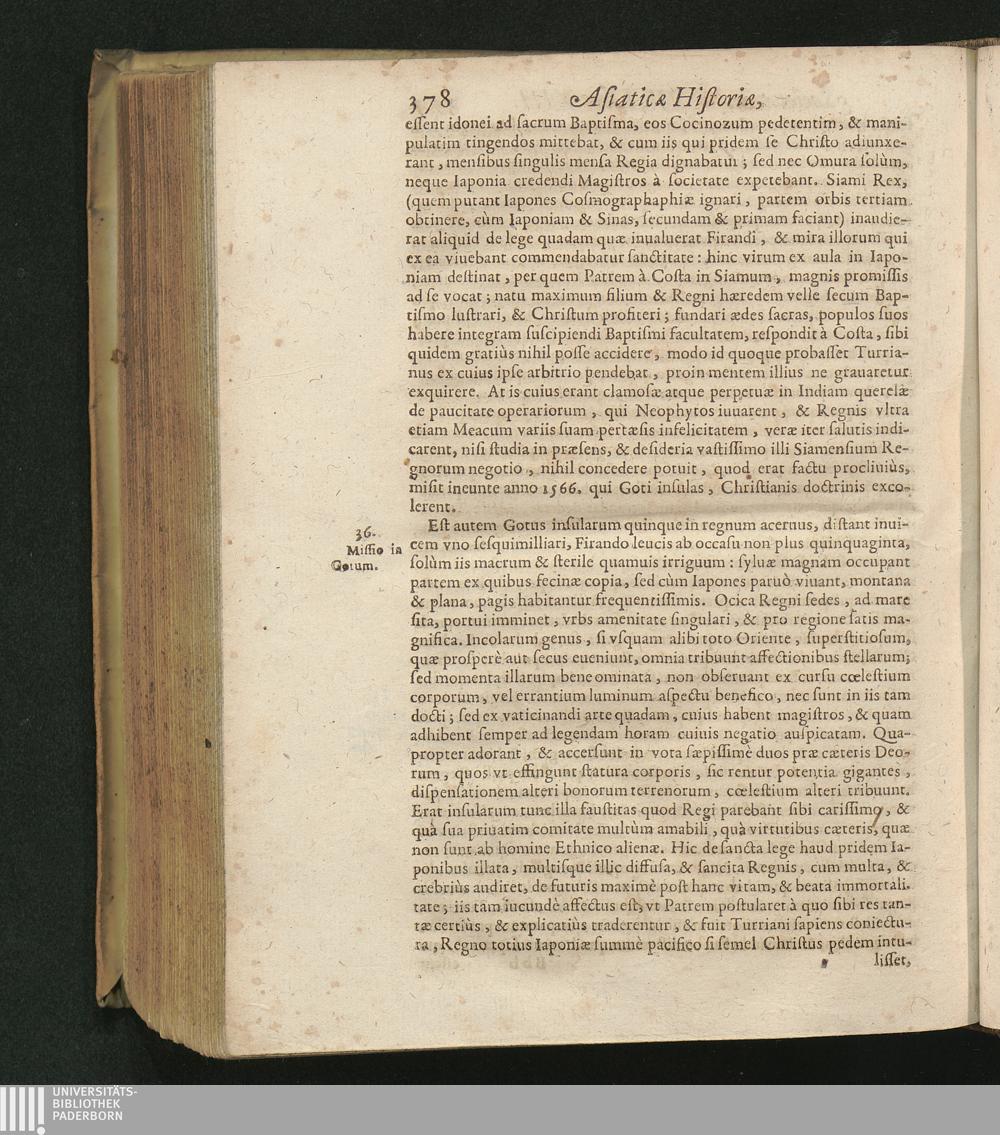 378 Asiaticæ Historiæ,
essent idonei ad sacrum Baptisma, eos Cocinozum pedetentim, & mani-
pulatim tingendos mittebat, & cum iis qui pridem se Christo adiunxe-
rant, mensibus singulis mensa Regia dignabatur; sed nec Omura solùm,
neque Iaponia credendi Magistros à societate expetebant. Siami Rex,
(quem putant Iapones Cosmographaphiæ ignari, partem orbis tertiam
obtinere, cùm Iaponiam & Sinas, secundam & primam faciant) inaudie-
rat aliquid de lege quadam quæ inualuerat Firandi, & mira illorum qui
ex ea viuebant commendabatur sanctitate: hinc virum ex aula in Iapo-
niam destinat, per quem Patrem à Costa in Siamum, magnis promissis
ad se vocat; natu maximum filium & Regni hæredem velle secum Bap-
tismo lustrari, & Christum profiteri; fundari ædes sacras, populos suos
habere integram suscipiendi Baptismi facultatem, respondit à Costa, sibi
quidem gratiùs nihil posse accidere, modo id quoque probasset Turria-
nus ex cuius ipse arbitrio pendebat, proin mentem illius ne grauaretur
exquirere. At is cuius erant clamosæ atque perpetuæ in Indiam querelæ
de paucitate operariorum, qui Neophytos iuuarent, & Regnis vltra
etiam Meacum variis suam pertæsis infelicitatem, veræ iter salutis indi-
carent, nisi studia in præsens, & desideria vastissimo illi Siamensium Re-
gnorum negotio, nihil concedere potuit, quod erat factu procliuiùs,
misit ineunte anno 1566. qui Goti insulas, Christianis doctrinis exco-
lerent.
36.
Missio in
Gotum.
Est autem Gotus insularum quinque in regnum aceruus, distant inui-
cem vno sesquimilliari, Firando leucis ab occasu non plus quinquaginta,
solùm iis macrum & sterile quamuis irriguum: syluæ magnam occupant
partem ex quibus fecinæ copia, sed cùm Iapones paruò viuant, montana
& plana, pagis habitantur frequentissimis. Ocica Regni sedes, ad mare
sita, portui imminet, vrbs amenitate singulari, & pro regione satis ma-
gnifica. Incolarum genus, si vsquam alibi toto Oriente, superstitiosum,
quæ prosperè aut secus eueniunt, omnia tribuunt affectionibus stellarum;
sed momenta illarum bene ominata, non obseruant ex cursu cœlestium
corporum, vel errantium luminum aspectu benefico, nec sunt in iis tam
docti; sed ex vaticinandi arte quadam, cuius habent magistros, & quam
adhibent semper ad legendam horam cuiuis negatio auspicatam. Qua-
propter adorant, & accersunt in vota sæpissimè duos præ cæteris Deo-
rum, quos vt effingunt statura corporis, sic rentur potentia gigantes,
dispensationem alteri bonorum terrenorum, cœlestium alteri tribuunt.
Erat insularum tunc illa faustitas quod Regi parebant sibi carissimo, &
quà sua priuatim comitate multùm amabili, quà virtutibus cæteris, quæ
non sunt ab homine Ethnico alienæ. Hic de sancta lege haud pridem Ia-
ponibus illata, multisque illic diffusa, & sancita Regnis, cum multa, &
crebriùs audiret, de futuris maximè post hanc vitam, & beata immortali-
tate; iis tam iucundè affectus est, vt Patrem postularet à quo sibi res tan-
tæ certiùs, & explicatiùs traderentur, & fuit Turriani sapiens coniectu-
ra, Regno totius Iaponiæ summè pacifico si semel Christus pedem intu-
lisset,
UNIVERSITÄTS-
BIBLIOTHEK
PADERBORN